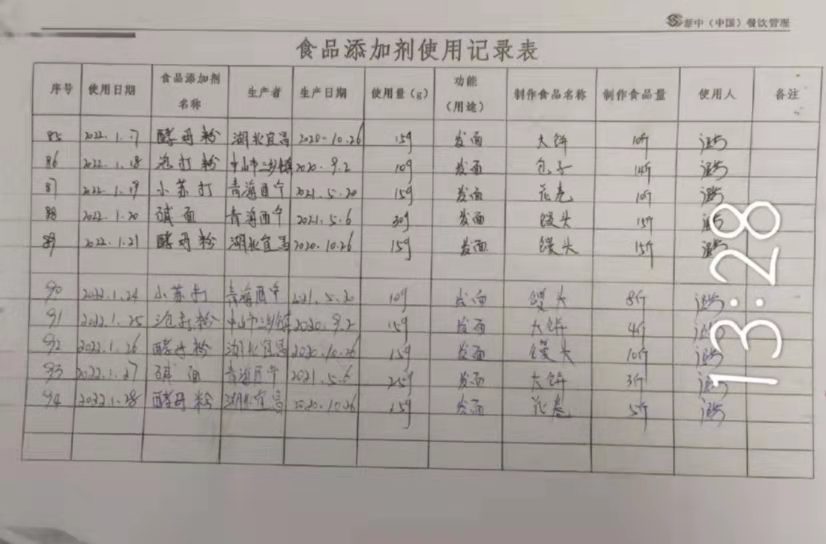 中（中国）餐饮管理
食品添加剂使用记录表
序号 使用日期 食品添加剂名称 生产者 生产日期 使用量（g） 功能（用途） 制作食品名称 制作食品量 使用人 备注
85 2022.1.17 酵母粉 湖北宜昌 2020.10.26 15g 发面 大饼 10斤
86 2022.1.18 泡打粉 中山市沙镇 2020.9.2 10g 发面 包子 14斤
87 2022.1.19 小苏打 青海西宁 2021.5.20 15g 发面 花卷 10斤
88 2022.1.20 碱面 青海西宁 2021.5.6 30g 发面 馒头 15斤
89 2022.1.21 酵母粉 湖北宜昌 2020.10.26 15g 发面 馒头 15斤
90 2022.1.24 小苏打 青海西宁 2021.5.20 10g 发面 馒头 8斤
91 2022.1.25 泡打粉 中山市沙镇 2020.9.2 15g 发面 大饼 4斤
92 2022.1.26 酵母粉 湖北宜昌 2020.10.26 15g 发面 馒头 10斤
93 2022.1.27 碱面 青海西宁 2021.5.6 25g 发面 大饼 3斤
94 2022.1.28 酵母粉 湖北宜昌 2020.10.26 15g 发面 花卷 5斤
13:28